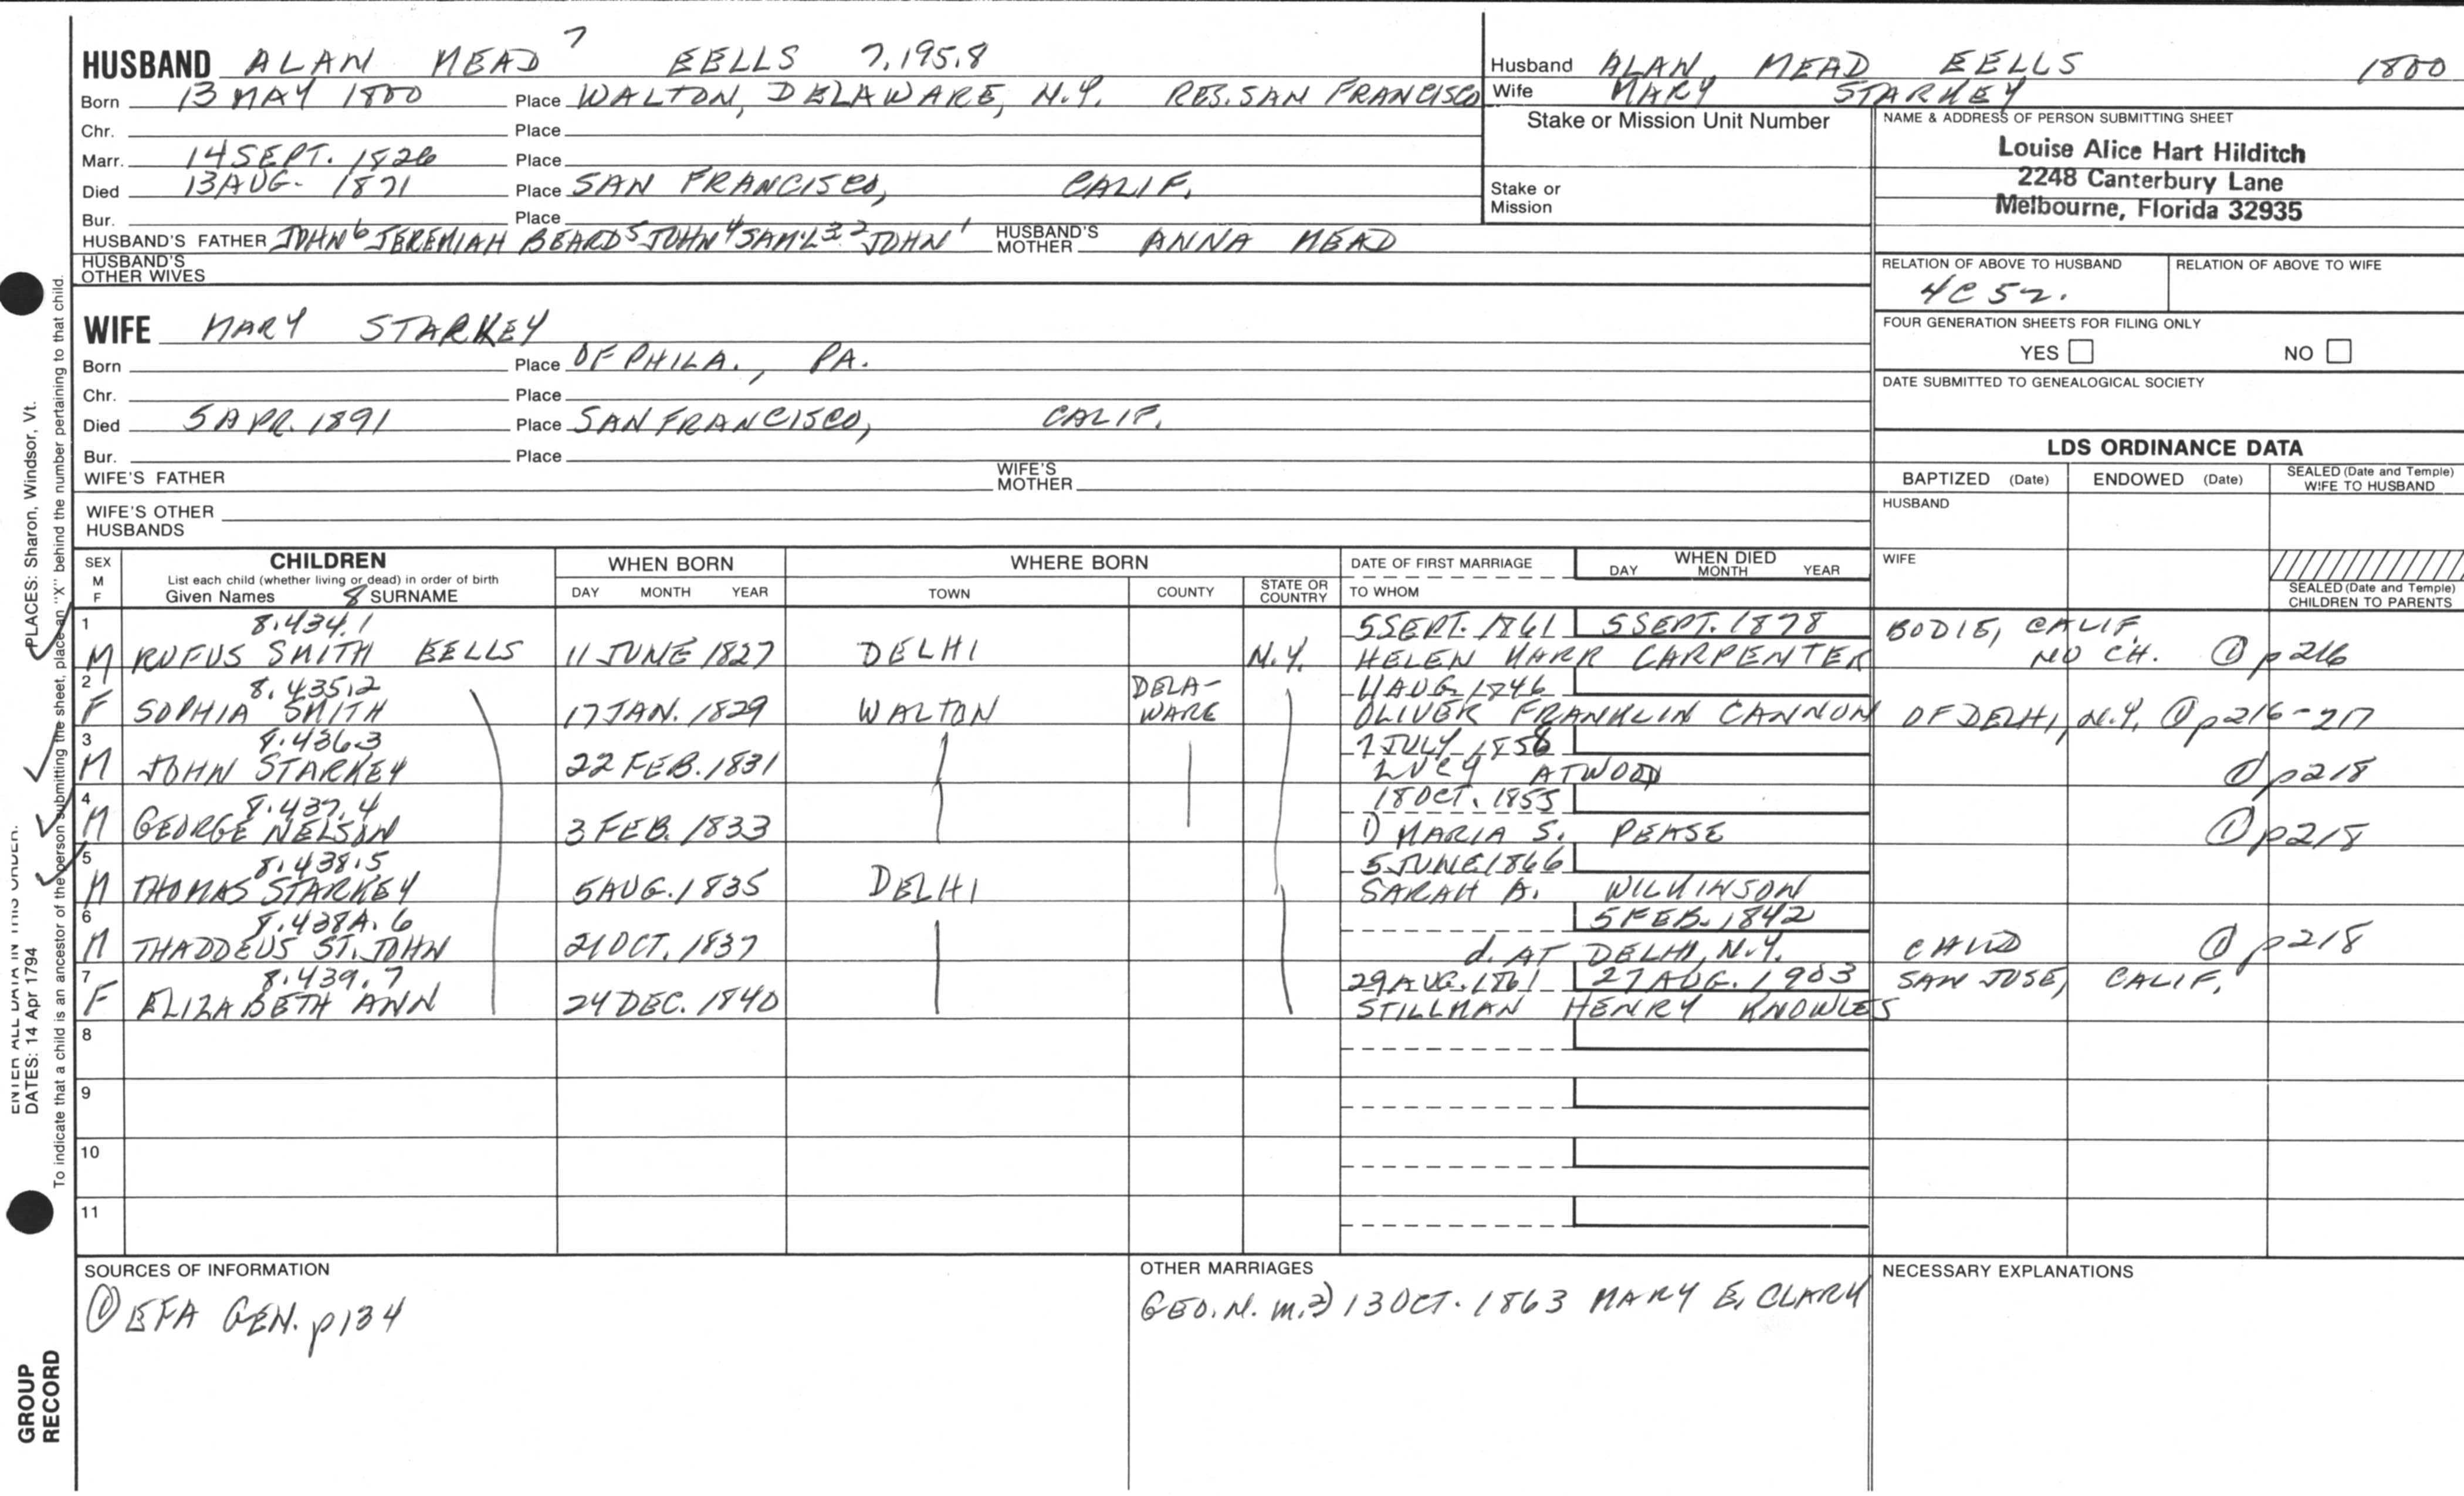 HUSBAND ALAN MEAD 7 EELLS 7.195.8
Born 13 MAY 1800 Place WALTON, DELAWARE, N.Y. RES. SAN FRANCISCO
Chr. Place
Marr. 14 SEPT. 1826 Place
Died 13 AUG. 1871 Place SAN FRANCISCO, CALIF.
Bur. Place
HUSBAND'S FATHER JOHN 6 JEREMIAH BEARD 5 JOHN 4 SAM'L 3 2 JOHN 1 HUSBAND'S MOTHER ANNA MEAD
HUSBAND'S OTHER WIVES
WIFE MARY STARKEY
Born Place OF PHILA., PA.
Chr. Place
Died 5 APR. 1891 Place SAN FRANCISCO, CALIF.
Bur. Place
WIFE'S FATHER WIFE'S MOTHER
WIFE'S OTHER HUSBANDS
Husband ALAN MEAD EELLS 1800
Wife MARY STARKEY
Stake or Mission Unit Number
Stake or Mission
NAME & ADDRESS OF PERSON SUBMITTING SHEET
Louise Alice Hart Hilditch
2248 Canterbury Lane
Melbourne, Florida 32935
RELATION OF ABOVE TO HUSBAND RELATION OF ABOVE TO WIFE
4C5r.
FOUR GENERATION SHEETS FOR FILING ONLY
YES NO
DATE SUBMITTED TO GENEALOGICAL SOCIETY
LDS ORDINANCE DATA
BAPTIZED (Date) ENDOWED (Date) SEALED (Date and Temple) WIFE TO HUSBAND
HUSBAND
WIFE
SEALED (Date and Temple)
CHILDREN TO PARENTS
SEX M F CHILDREN WHEN BORN WHERE BORN DATE OF FIRST MARRIAGE WHEN DIED
List each child (whether living or dead) in order of birth
Given Names 8 SURNAME DAY MONTH YEAR TOWN COUNTY STATE OR COUNTRY TO WHOM DAY MONTH YEAR
1 8.434.1 5 SEPT. 1861 5 SEPT. 1878 BODIE, CALIF.
M RUFUS SMITH EELLS 11 JUNE 1827 DELHI N.Y. HELEN MARR CARPENTER NO CH. ① p216
2 8.435.2 DELA- 4 AUG. 1846
F SOPHIA SMITH 17 JAN. 1829 WALTON WARE OLIVER FRANKLIN CANNON OF DELHI, N.Y. ① p216-217
3 8.436.3 7 JULY 1858
M JOHN STARKEY 22 FEB. 1831 LUCY ATWOOD ① p218
4 8.437.4 18 OCT. 1855
M GEORGE NELSON 3 FEB. 1833 1) MARIA S. PEASE ① p218
5 8.438.5 5 JUNE 1866
M THOMAS STARKEY 5 AUG. 1835 DELHI SARAH A. WILKINSON
6 8.438A.6 5 FEB. 1842
M THADDEUS ST. JOHN 21 OCT. 1837 d. AT DELHI, N.Y. CHILD ① p218
7 8.439.7 29 AUG. 1861 27 AUG. 1903 SAN JOSE, CALIF.
F ELIZABETH ANN 24 DEC. 1840 STILLMAN HENRY KNOWLES
8
9
10
11
SOURCES OF INFORMATION
① EFA GEN. p134
OTHER MARRIAGES
GEO. N. m. 2) 13 OCT. 1863 MARY E. CLARK
NECESSARY EXPLANATIONS
PLACES: Sharon, Windsor, Vt.
ENTER ALL DATA IN THIS ORDER:
DATES: 14 Apr 1794
To indicate that a child is an ancestor of the person submitting the sheet, place an "X" behind the number pertaining to that child.
GROUP
RECORD